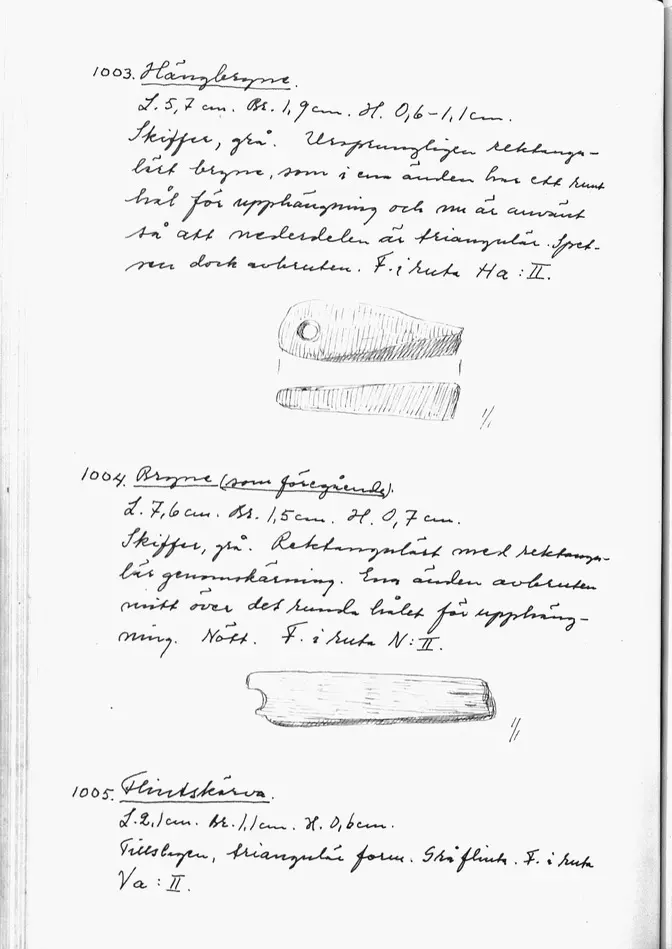 1003. Hängbryne.
L. 5,7 cm. Br. 1,9 cm. H. 0,6-1,1 cm.
Skiffer, grå. Ursprungligen rektangu-
lärt bryne, som i ena änden har ett runt
hål för upphängning och nu är använt
så att nederdelen är triangulär. Spet-
sen dock avbruten. F. i ruta Ha : II.
1/1
1004. Bryne (som föregående).
L. 7,6 cm. Br. 1,5 cm. H. 0,7 cm.
Skiffer, grå. Rektangulärt med rektangu-
lär genomskärning. Ena änden avbruten
mitt över det runda hålet för upphäng-
ning. Nött. F. i ruta N : II.
1/1
1005. Flintskärva.
L. 2,1 cm. Br. 1,1 cm. H. 0,6 cm.
Tillslagen, triangulär form. Grå flinta. F. i ruta
Va : II.